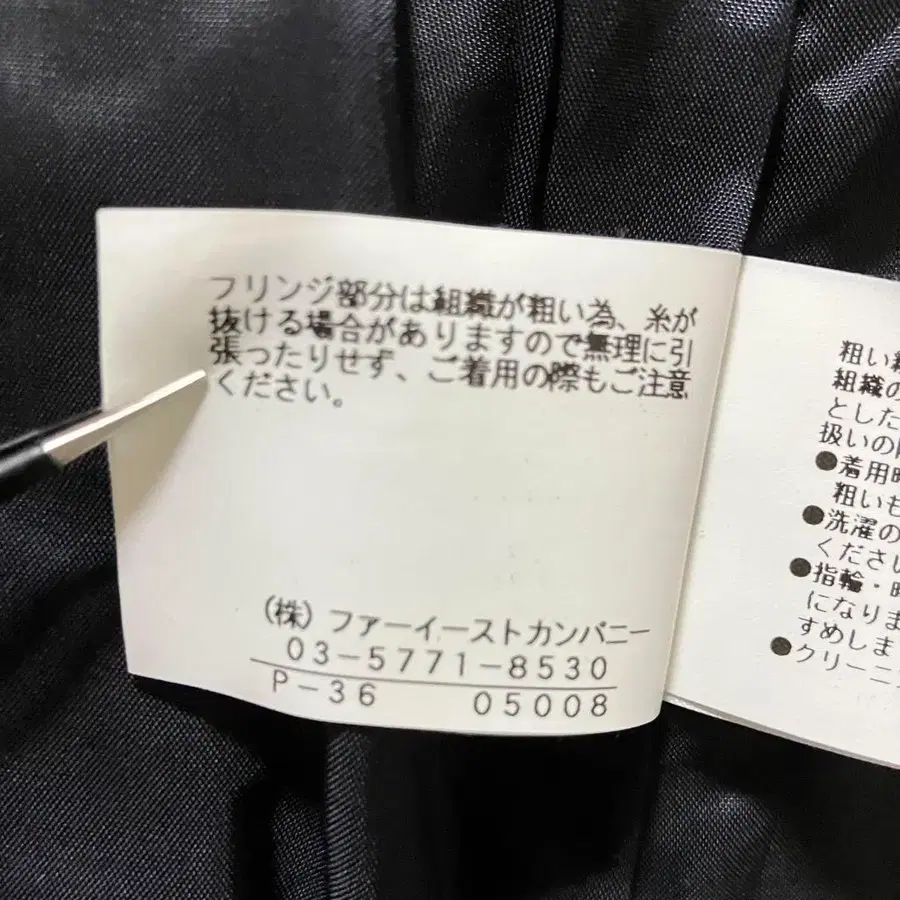 フリンジ部分は組織が粗い為、糸が
抜ける場合がありますので無理に引
張ったりせず、ご着用の際もご注意
ください。
(株) ファーイーストカンパニー
03-5771-8530
P-36 05008
粗い
組織の
とした
扱いの
●着用時
粗いも
●洗濯の
ください
●指輪・時
になりま
すめしま
●クリーニ